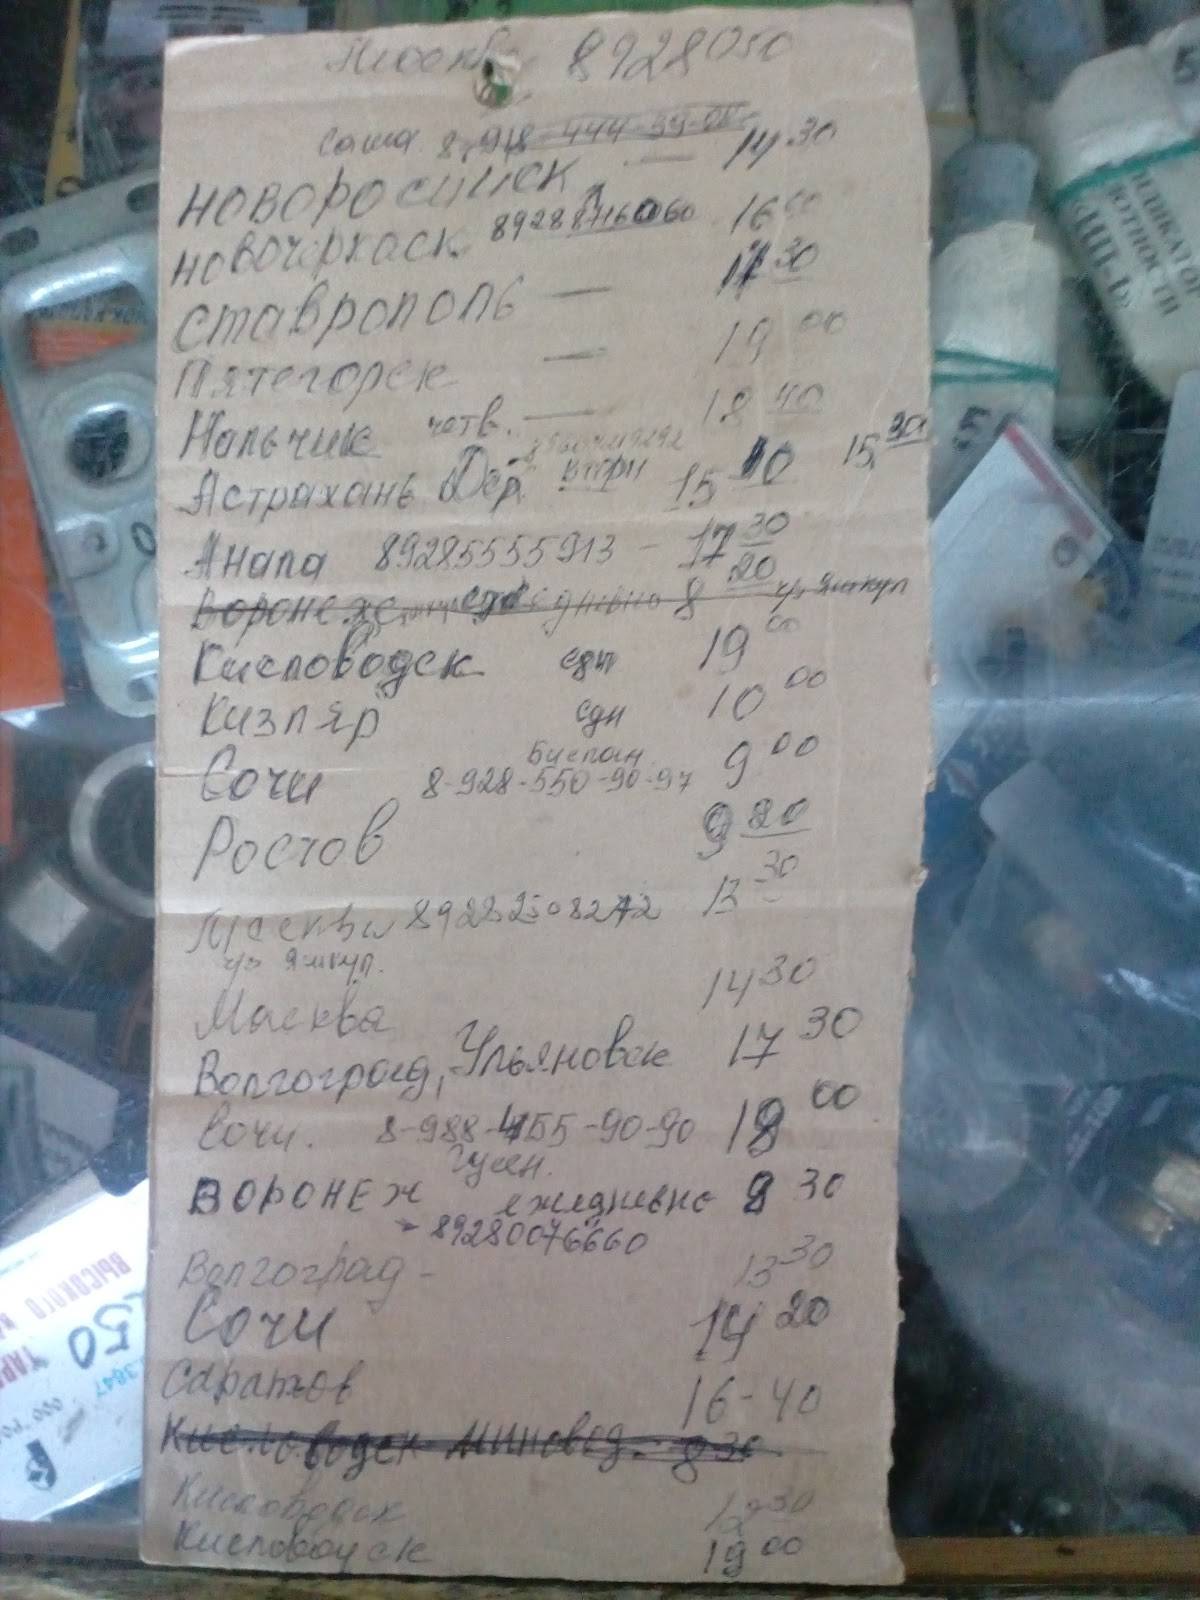 Москва 8928050
Саша 8-918-444-59-00
НОВОРОСИЙСК — 14 30
НОВОЧЕРКАСК 16 00
СТАВРОПОЛЬ — 17 30
Пятегорск — 19 00
Нальчик четв. — 18 40
Астрахань 15 10 15 30
Анапа 89285555913 – 17 30
Воронеж 8 20 ч/з Яшкул
Кисловодск едн 19 00
Кизляр едн 10 00
Беслан
Сочи 8-928-550-90-97 9 00
Ростов 9 20
Москва 13 30
ч/з Яшкул.
Москва 14 30
Волгоград, Ульяновск 17 30
Сочи. 8-988-455-90-90 18 00
ВОРОНЕЖ ежедневно 8 30
89280076660
Волгоград - 13 30
Сочи 14 20
Саратов 16-40
Кисловодск минвод. 8 30
Кисловодск 12 30
Кисловодск 19 00